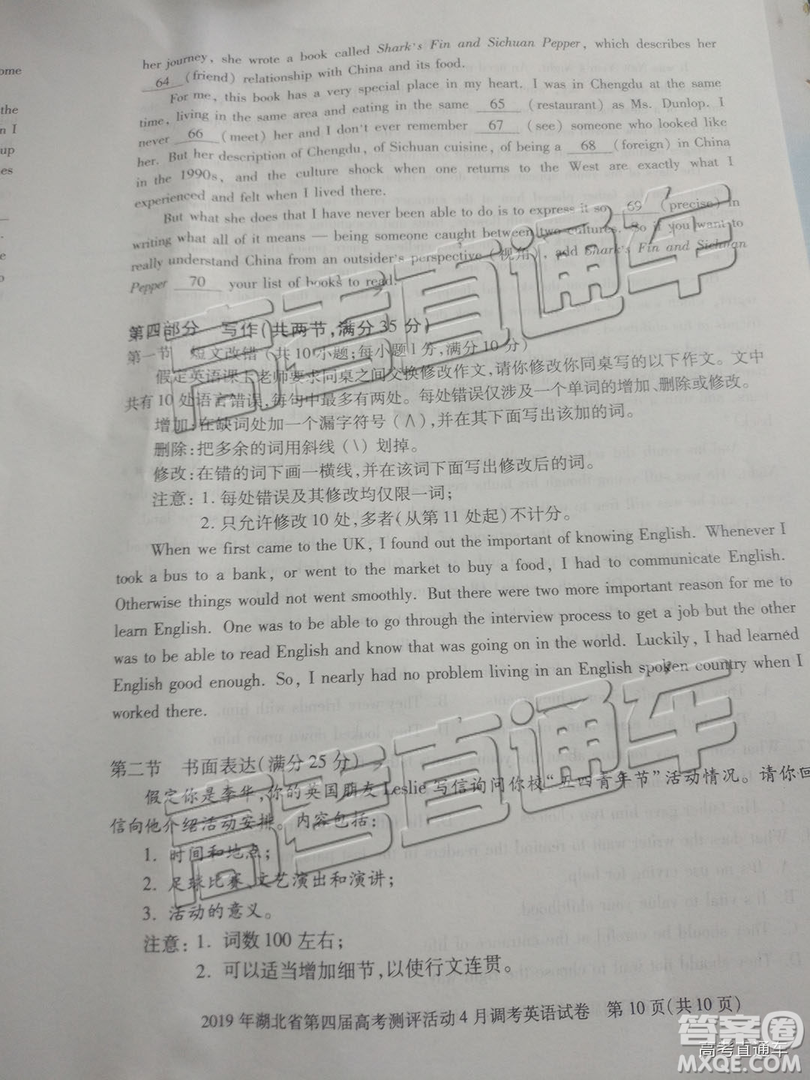 ome
the
n I
up
es
her journey, she wrote a book called Shark's Fin and Sichuan Pepper, which describes her
64 (friend) relationship with China and its food.
For me, this book has a very special place in my heart. I was in Chengdu at the same
time, living in the same area and eating in the same 65 (restaurant) as Ms. Dunlop. I
never 66 (meet) her and I don't ever remember 67 (see) someone who looked like
her. But her description of Chengdu, of Sichuan cuisine, of being a 68 (foreign) in China
in the 1990s, and the culture shock when one returns to the West are exactly what I
experienced and felt when I lived there.
But what she does that I have never been able to do is to express it so 69 (precise) in
writing what all of it means — being someone caught between two cultures. So if you want to
really understand China from an outsider's perspective (视角), add Shark's Fin and Sichuan
Pepper 70 your list of books to read.
第四部分 写作(共两节,满分35分)
第一节 短文改错(共10小题;每小题1分,满分10分)
假定英语课上老师要求同桌之间交换修改作文,请你修改你同桌写的以下作文。文中
共有10处语言错误,每句中最多有两处。每处错误仅涉及一个单词的增加、删除或修改。
增加:在缺词处加一个漏字符号(∧),并在其下面写出该加的词。
删除:把多余的词用斜线(\)划掉。
修改:在错的词下画一横线,并在该词下面写出修改后的词。
注意:1. 每处错误及其修改均仅限一词;
2. 只允许修改10处,多者(从第11处起)不计分。
When we first came to the UK, I found out the important of knowing English. Whenever I
took a bus to a bank, or went to the market to buy a food, I had to communicate English.
Otherwise things would not went smoothly. But there were two more important reason for me to
learn English. One was to be able to go through the interview process to get a job but the other
was to be able to read English and know that was going on in the world. Luckily, I had learned
English good enough. So, I nearly had no problem living in an English spoken country when I
worked there.
第二节 书面表达(满分25分)
假定你是李华,你的英国朋友Leslie写信询问你校“五四青年节”活动情况。请你回
信向他介绍活动安排。内容包括:
1. 时间和地点;
2. 足球比赛、文艺演出和演讲;
3. 活动的意义。
注意:1. 词数100左右;
2. 可以适当增加细节,以使行文连贯。
2019年湖北省第四届高考测评活动4月调考英语试卷 第10页(共10页)
高考直通车
高考直通车
答案圈
高考直通车
MXQE.COM